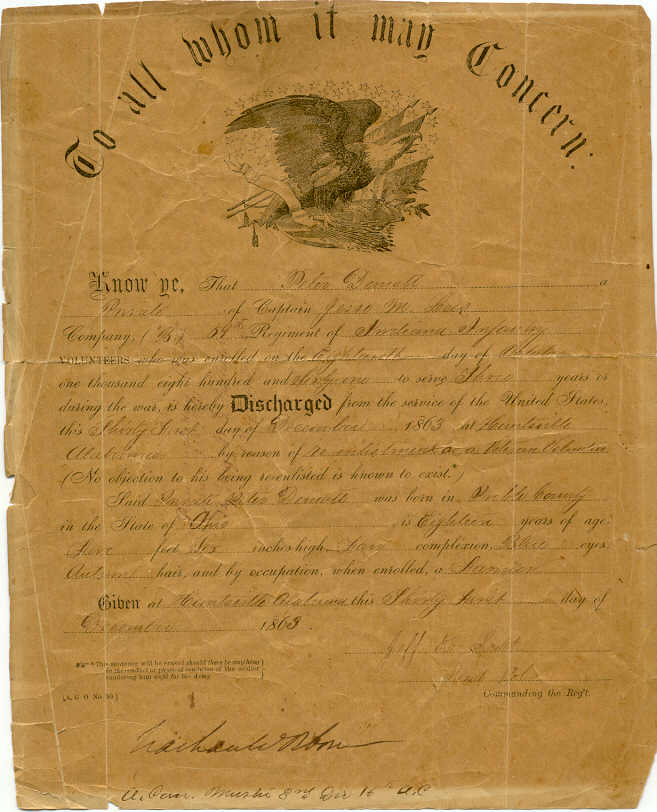 To all whom it may Concern:
Know ye, That Peter Demott a
Private of Captain Jesse M.
Company, (B,) 59th Regiment of Indiana Infantry
VOLUNTEERS who was enrolled on the Eighteenth day of October
one thousand eight hundred and Sixty one to serve Three years or
during the war, is hereby Discharged from the service of the United States,
this Thirty First day of December 1863 at Huntsville
Alabama by reason of reenlistment as a Veteran Volunteer
(No objection to his being reenlisted is known to exist.*)
Said Private Peter Demott was born in Preble County
in the State of Ohio is Eighteen years of age,
feet Six inches high, complexion, Blue eyes,
Auburn hair, and by occupation, when enrolled, a Farmer
Given at Huntsville Alabama this Thirty First day of
December 1863.
Jeff K. Scott
Lieut Col
* This sentence will be erased should there be anything
in the conduct or physical condition of the soldier
rendering him unfit for the Army.
[A. G. O. No. 99]
Commanding the Reg't.
A. Com. Muster 3rd Div 15th A.C